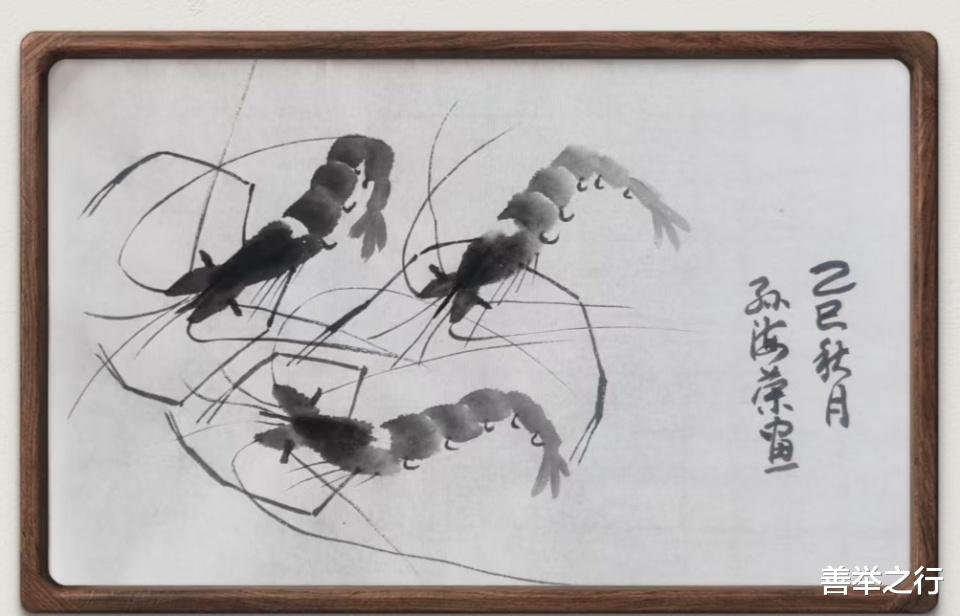 乙巳秋月
孙海荣画
善举之行